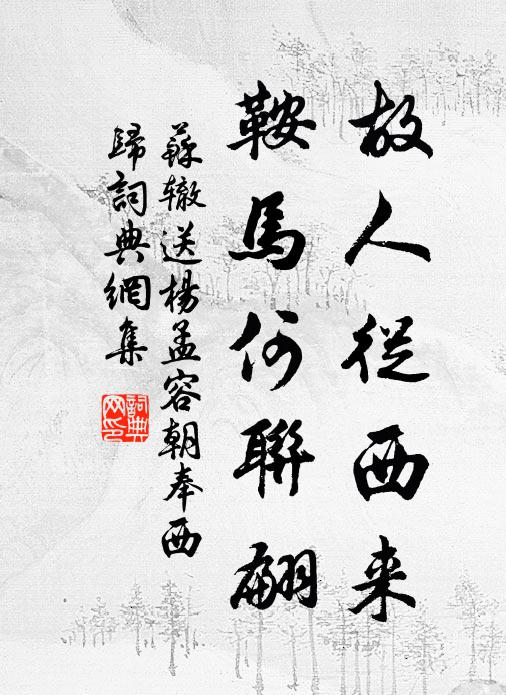 故人從西来
鞍馬何聯翩
蘇辙送楊孟容朝奉西
歸詞典網集
詞典
网印